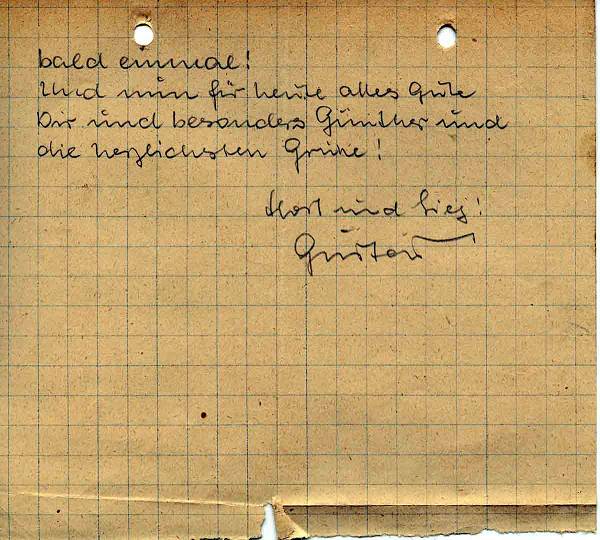 bald einmal!
Und nun für heute alles Gute
Dir und besonders Günther und
die herzlichsten Grüße!
und Sieg!
Gustav